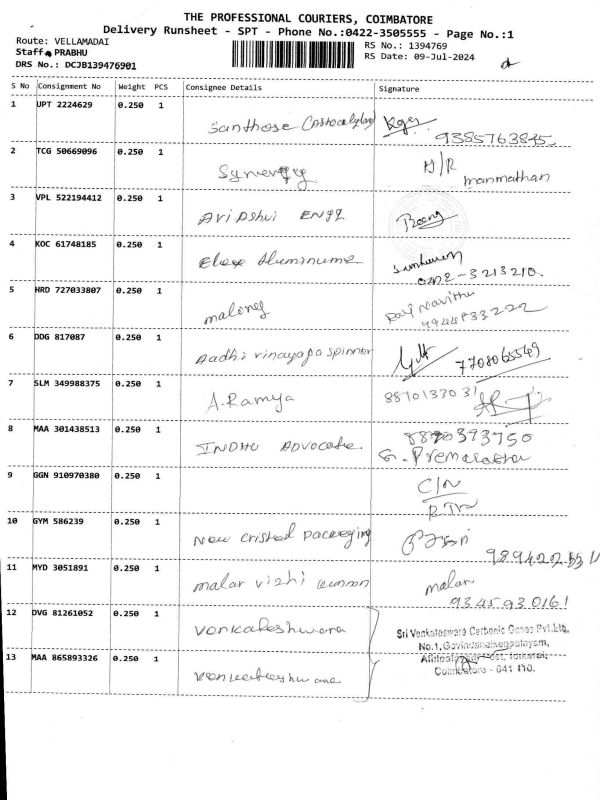 THE PROFESSIONAL COURIERS, COIMBATORE
Delivery Runsheet - SPT - Phone No.:0422-3505555 - Page No.:1
Route: VELLAMADAI
Staff: PRABHU
DRS No.: DCJB139476901
RS No.: 1394769
RS Date: 09-Jul-2024
S No Consignment No Weight PCS Consignee Details Signature
1 UPT 2224629 0.250 1 Santhose
2 TCG 50669096 0.250 1 Synergy H/R
manmathan
3 VPL 522194412 0.250 1 Avi Ashvi ENgg
4 KOC 61748185 0.250 1 Aluminume
0422-3213210.
5 HRD 727033807 0.250 1 maloney
6 DDG 817087 0.250 1 Aadhi vinayaga spinner
7708065549
7 SLM 349988375 0.250 1 A. Ramya 8870133031
8 MAA 301438513 0.250 1 INDHU ADVOCATE 8870393750
9 GGN 910970380 0.250 1 C/N
RTN
10 GYM 586239 0.250 1 New packaging
11 MYD 3051891 0.250 1 malar vizhi malar
9345930161
12 DVG 81261052 0.250 1 Venkateshwara
Sri Venkateswara Carbonic Gases Pvt.Ltd.
13 MAA 865893326 0.250 1 Coimbatore - 641 110.